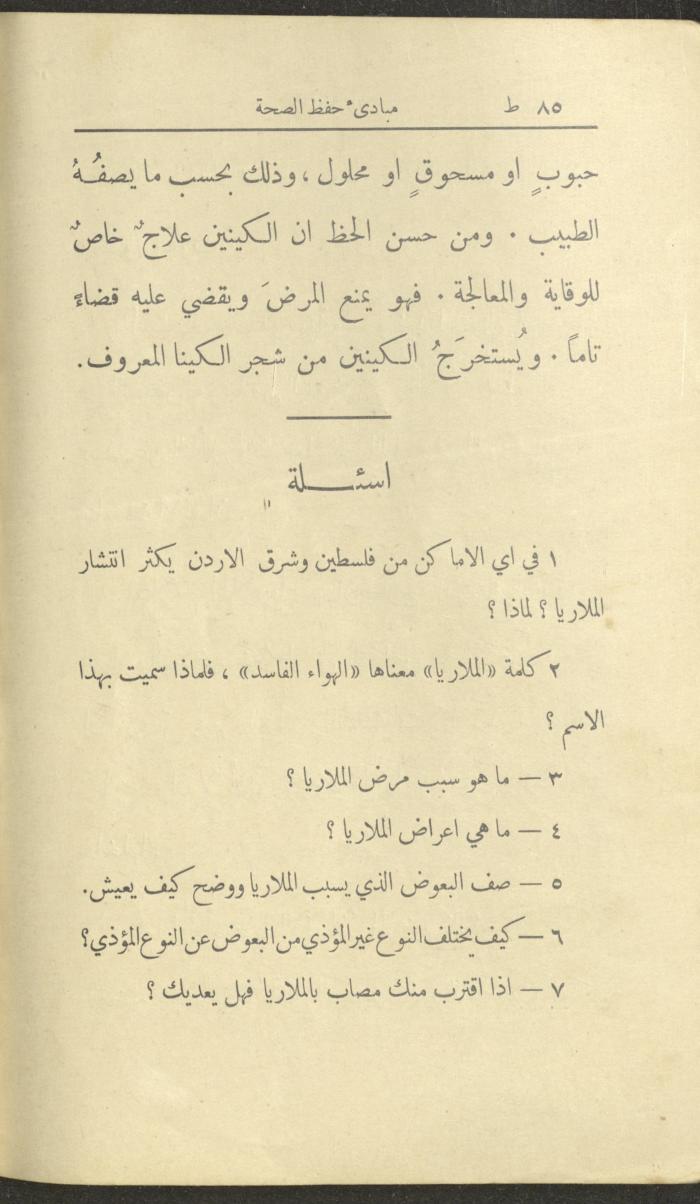 ٨٥ ط مبادىء حفظ الصحة
حبوبٍ او مسحوقٍ او محلول ، وذلك بحسب ما يصفُهُ
الطبيب . ومن حسن الحظ ان الكينين علاجٌ خاصٌ
للوقاية والمعالجة . فهو يمنع المرضَ ويقضي عليه قضاءً
تاماً . ويُستخرَجُ الكينين من شجر الكينا المعروف .
اسئلة
١ في اي الاماكن من فلسطين وشرق الاردن يكثر انتشار
الملاريا ؟ لماذا ؟
٢ كلمة «الملاريا» معناها «الهواء الفاسد» ، فلماذا سميت بهذا
الاسم ؟
٣ — ما هو سبب مرض الملاريا ؟
٤ — ما هي اعراض الملاريا ؟
٥ — صف البعوض الذي يسبب الملاريا ووضح كيف يعيش .
٦ — كيف يختلف النوع غير المؤذي من البعوض عن النوع المؤذي ؟
٧ — اذا اقترب منك مصاب بالملاريا فهل يعديك ؟